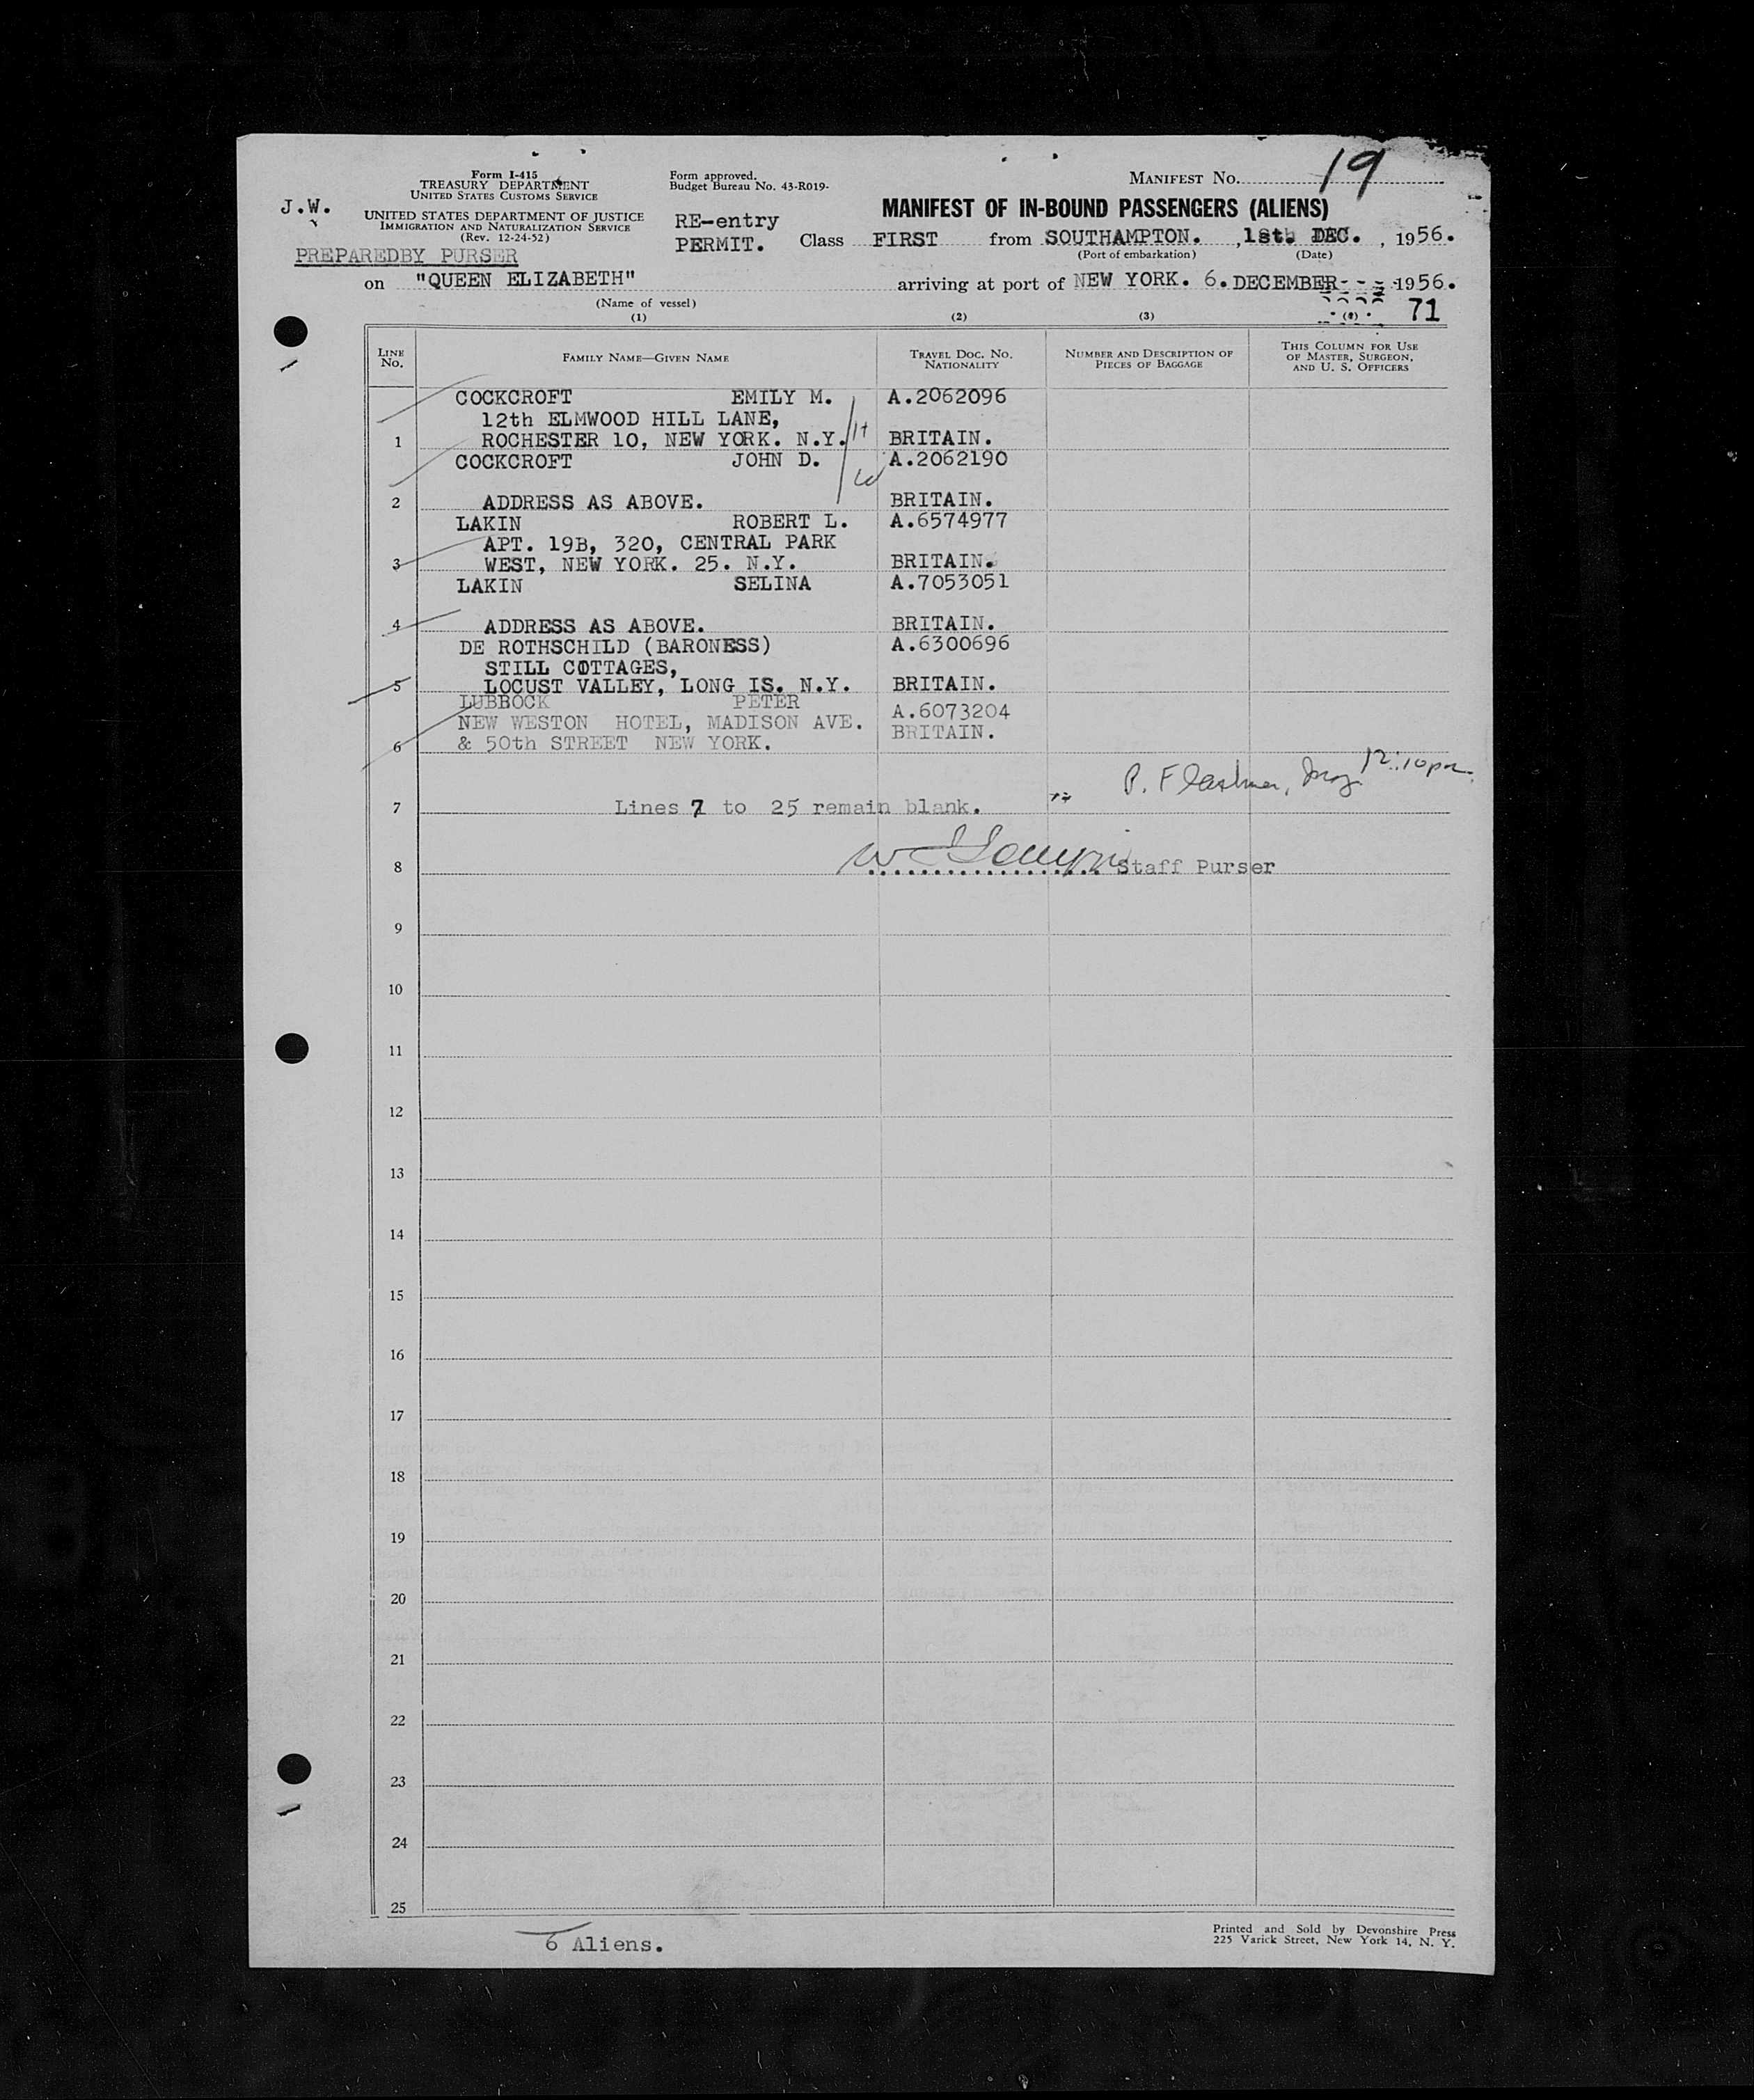 19
Form I-415
TREASURY DEPARTMENT
UNITED STATES CUSTOMS SERVICE
Form approved.
Budget Bureau No. 43-R019-
MANIFEST NO.
J.W.
UNITED STATES DEPARTMENT OF JUSTICE
IMMIGRATION AND NATURALIZATION SERVICE
(Rev. 12-24-52)
RE-entry
PERMIT.
MANIFEST OF IN-BOUND PASSENGERS (ALIENS)
PREPAREDBY PURSER
Class FIRST from SOUTHAMPTON. , 1st. DEC. , 1956.
(Port of embarkation) (Date)
on "QUEEN ELIZABETH" arriving at port of NEW YORK. 6. DECEMBER 1956.
(Name of vessel)
71
(1) (2) (3) (4)
LINE NO. FAMILY NAME—GIVEN NAME TRAVEL DOC. NO. NATIONALITY NUMBER AND DESCRIPTION OF PIECES OF BAGGAGE THIS COLUMN FOR USE OF MASTER, SURGEON, AND U. S. OFFICERS
COCKCROFT EMILY M. A.2062096
12th ELMWOOD HILL LANE,
1 ROCHESTER 10, NEW YORK. N.Y. BRITAIN.
COCKCROFT JOHN D. A.2062190
2 ADDRESS AS ABOVE. BRITAIN.
LAKIN ROBERT L. A.6574977
APT. 19B, 320, CENTRAL PARK
3 WEST, NEW YORK. 25. N.Y. BRITAIN.
LAKIN SELINA A.7053051
4 ADDRESS AS ABOVE. BRITAIN.
DE ROTHSCHILD (BARONESS) A.6300696
STILL COTTAGES,
5 LOCUST VALLEY, LONG IS. N.Y. BRITAIN.
LUBBOCK PETER A.6073204
NEW WESTON HOTEL, MADISON AVE. BRITAIN.
6 & 50th STREET NEW YORK.
12:10 pm
7 Lines 7 to 25 remain blank.
8 Staff Purser
9
10
11
12
13
14
15
16
17
18
19
20
21
22
23
24
25
6 Aliens.
Printed and Sold by Devonshire Press
225 Varick Street, New York 14, N. Y.